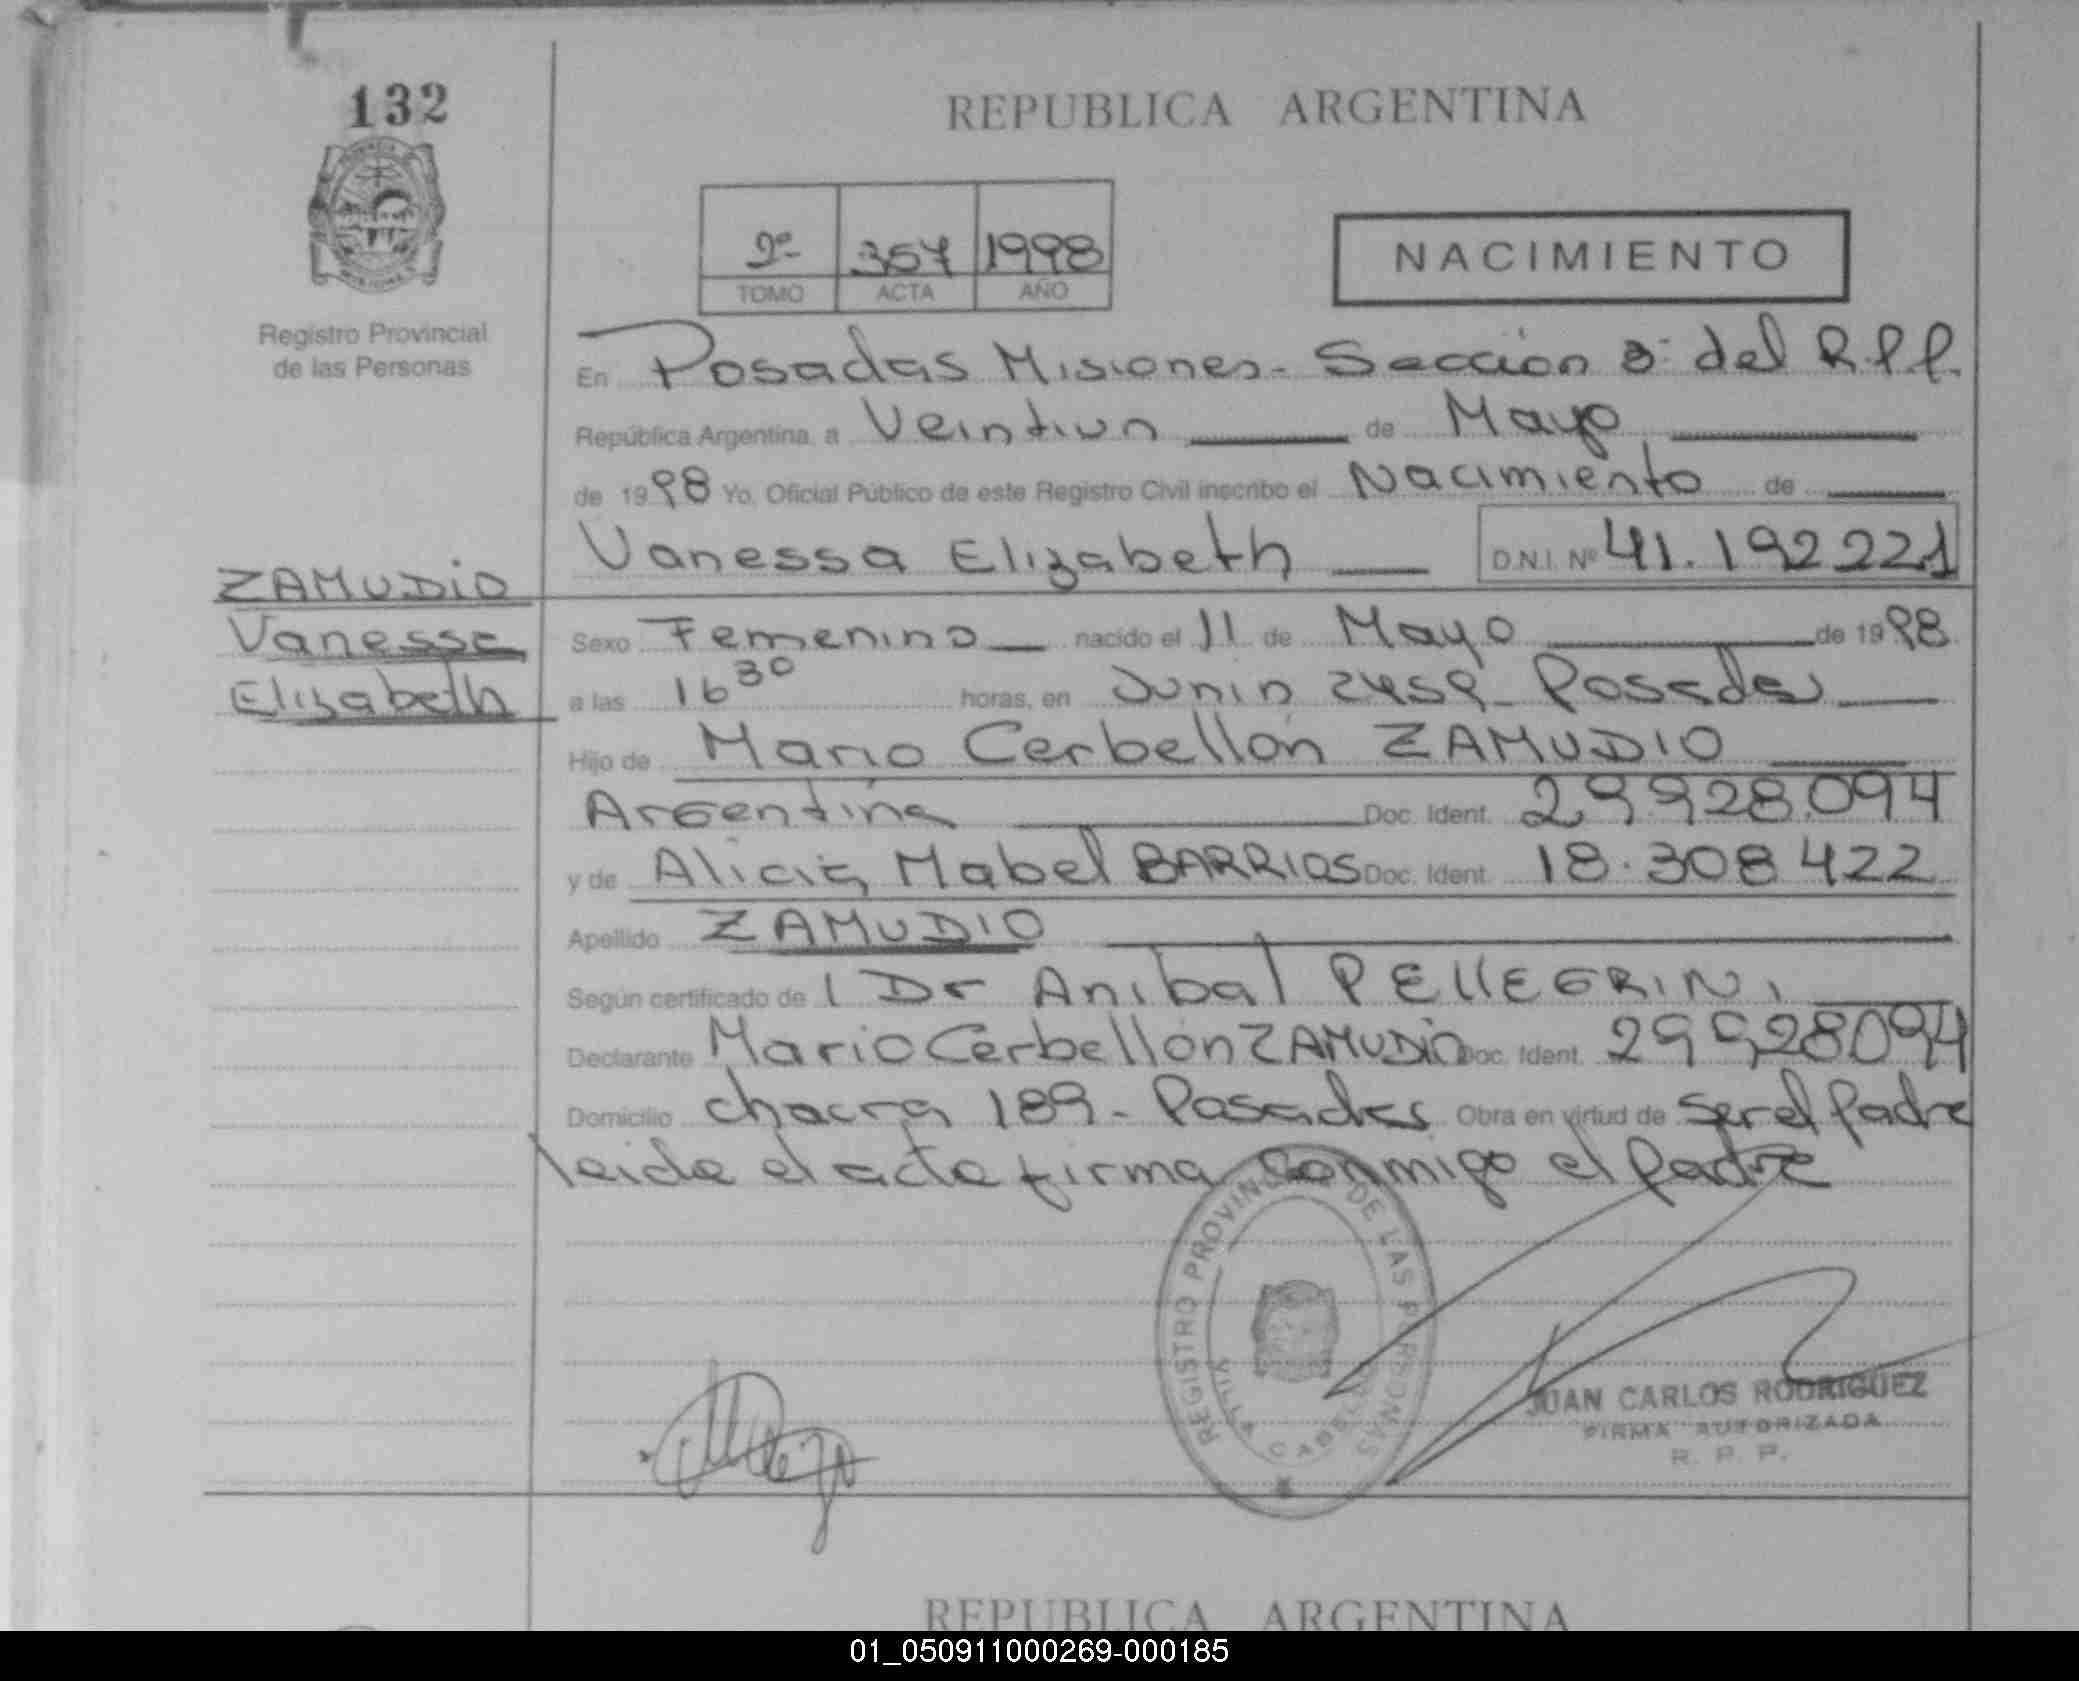 132
REPUBLICA ARGENTINA
2º 357 1998
TOMO ACTA AÑO
NACIMIENTO
Registro Provincial
de las Personas
En Posadas Misiones - Sección 3ª del R.P.P.
República Argentina, a Veintiun de Mayo
de 1998 Yo, Oficial Público de este Registro Civil inscribo el Nacimiento de
Vanessa Elizabeth D.N.I. Nº 41.192221
ZAMUDIO
Vanessa
Elizabeth
Sexo Femenino nacido el 11 de Mayo de 1998
a las 16 30 horas, en Junin 2459 - Posadas
Hijo de Mario Cerbellón ZAMUDIO
Argentina Doc. Ident. 29.928.094
y de Alicia Mabel BARRIOS Doc. Ident. 18.308422
Apellido ZAMUDIO
Según certificado de l Dr Anibal PELLEGRINI
Declarante Mario Cerbellón ZAMUDIO Doc. Ident. 29928094
Domicilio chacra 189 - Posadas Obra en virtud de ser el padre
leida el acta firma conmigo el padre
REGISTRO PROVINCIAL DE LAS PERSONAS
VILLA CABELLO
JUAN CARLOS RODRIGUEZ
FIRMA AUTORIZADA
R. P. P.
REPUBLICA ARGENTINA
01_050911000269-000185